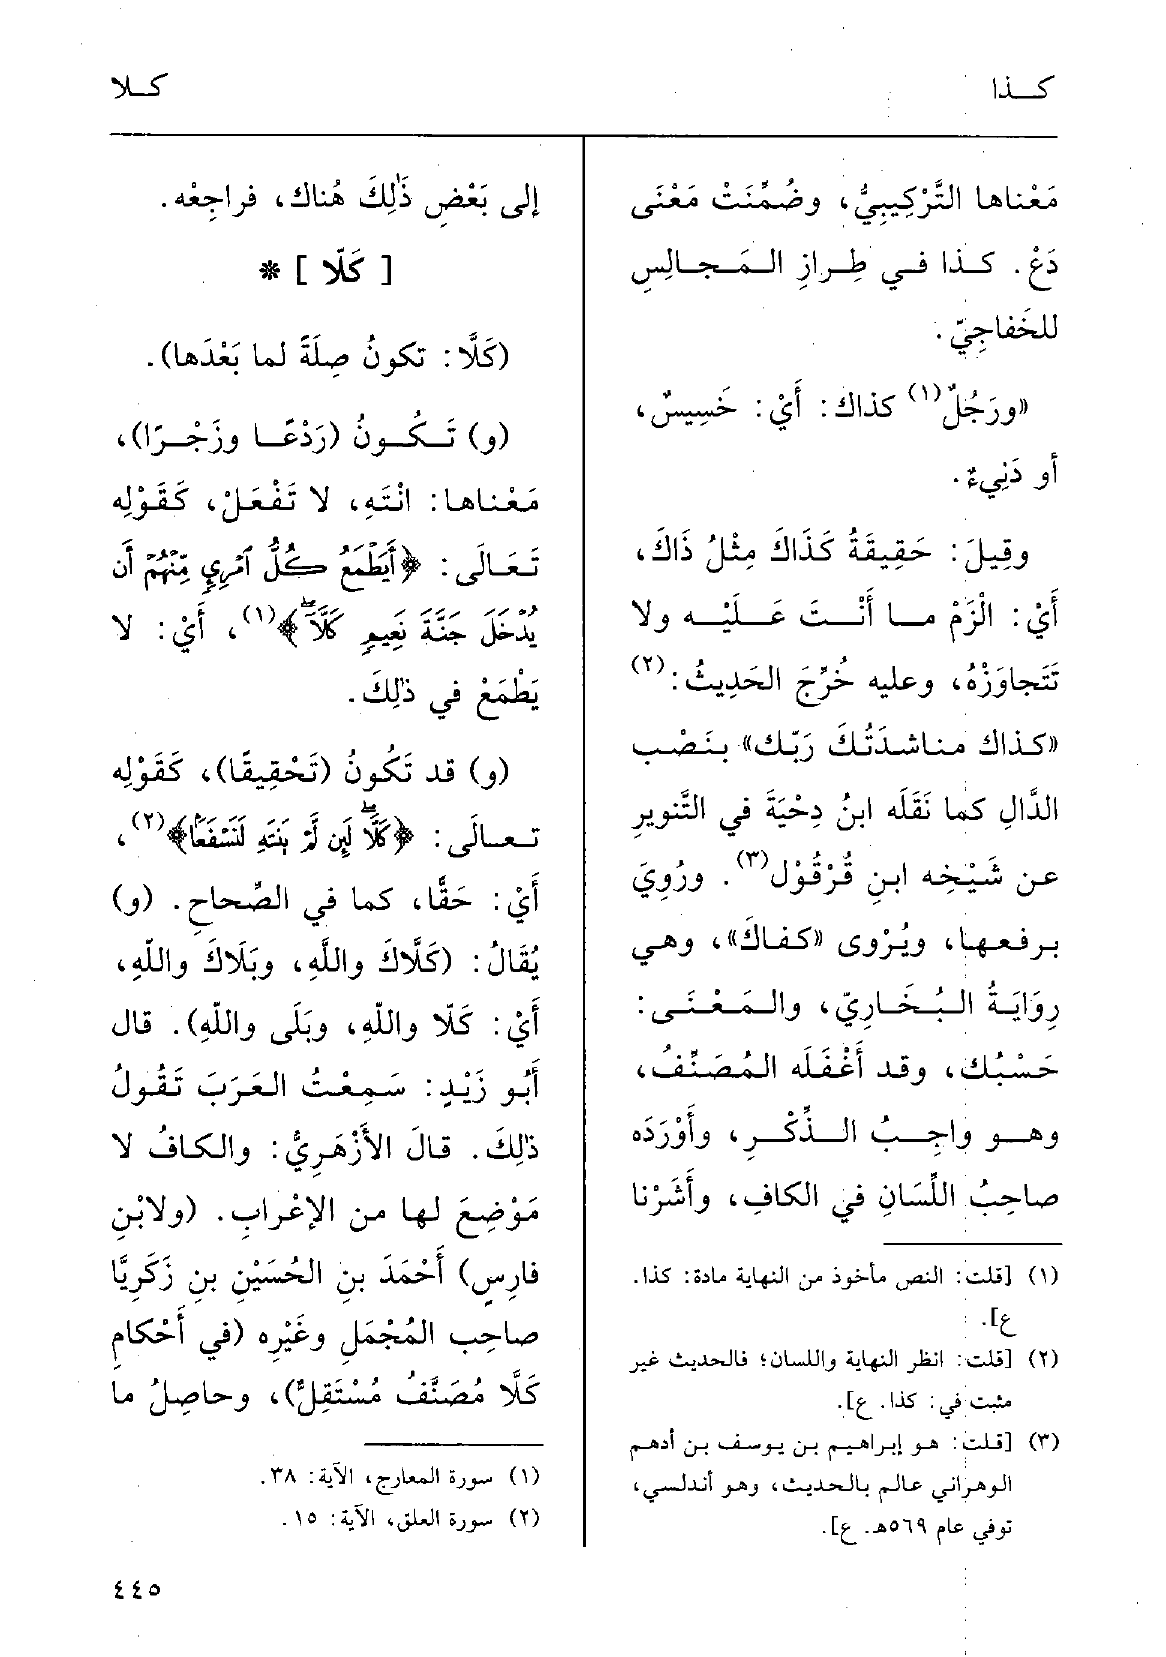 كـذا
كـلا
مَعْناها التَّرْكِيبِيُّ، وضُمِّنَتْ مَعْنَى
دَعْ. كـذا فـي طِـرازِ الـمَـجـالِسِ
للخَفاجِيّ.
«ورَجُلٌ(١) كذاكَ: أَيْ: خَسِيسٌ،
أو دَنِيءٌ.
وقِيلَ: حَقِيقَةُ كَذَاكَ مِثْلُ ذَاكَ،
أَيْ: الْزَمْ مـا أَنْـتَ عَـلَيْـه ولا
تَتَجاوَزْهُ، وعليه خُرِّجَ الحَدِيثُ:(٢)
«كـذاكَ مناشدَتُكَ رَبّك» بنَصْب
الدَّالِ كما نَقَلَه ابنُ دِحْيَةَ في التَّنويرِ
عن شَيْخِه ابنِ قُرْقُوْل(٣). ورُوِيَ
برفعها، ويُرْوى «كفاكَ»، وهي
رِوَايَةُ البُخَارِيّ، والمَعْنَى:
حَسْبُك، وقد أَغْفَلَه المُصَنِّفُ،
وهـو واجِـبُ الـذِّكْـرِ، وأَوْرَدَه
صاحِبُ اللِّسَانِ في الكافِ، وأَشَرْنا
(١) [قلت: النص مأخوذ من النهاية مادة: كذا.
ع].
(٢) [قلت: انظر النهاية واللسان؛ فالحديث غير
مثبت في: كذا. ع].
(٣) [قلت: هو إبراهيم بن يوسف بن أدهم
الوهراني عالم بالحديث، وهو أندلسي،
توفي عام ٥٦٩هـ. ع].
إلى بَعْضِ ذٰلِكَ هُناك، فراجِعْه.
[ كَلّا ] *
(كَلَّا: تكونُ صِلَةً لما بَعْدَها).
(و) تَـكُـونُ (رَدْعًـا وزَجْـرًا)،
مَعْناها: انْتَهِ، لا تَفْعَلْ، كَقَوْلِه
تَعَالَى: ﴿أَيَطْمَعُ كُلُّ ٱمْرِيٕ مِّنْهُمْ أَن
يُدْخَلَ جَنَّةَ نَعِيمٍ كَلَّآۖ﴾(١)، أَيْ: لا
يَطْمَعْ في ذٰلِكَ.
(و) قد تَكُونُ (تَحْقِيقًا)، كَقَوْلِه
تـعـالَى: ﴿كَلَّاۖ لَئِن لَّمْ يَنتَهِ لَنَسْفَعًا﴾(٢)،
أَيْ: حَقًّا، كما في الصِّحاح. (و)
يُقَالُ: (كَلَّاكَ واللَّهِ، وبَلَاكَ واللّهِ،
أَيْ: كَلّا واللّهِ، وبَلَى واللّهِ). قال
أَبُو زَيْدٍ: سَمِعْتُ العَرَبَ تَقُولُ
ذٰلِكَ. قالَ الأَزْهَرِيُّ: والكافُ لا
مَوْضِعَ لها من الإعْرابِ. (ولابْنِ
فارِسٍ) أَحْمَدَ بنِ الحُسَيْنِ بنِ زَكَرِيَّا
صاحِب المُجْمَلِ وغَيْرِه (في أَحْكامِ
كَلَّا مُصَنَّفٌ مُسْتَقِلٌّ)، وحاصِلُ ما
(١) سورة المعارج، الآية: ٣٨.
(٢) سورة العلق، الآية: ١٥.
٤٤٥